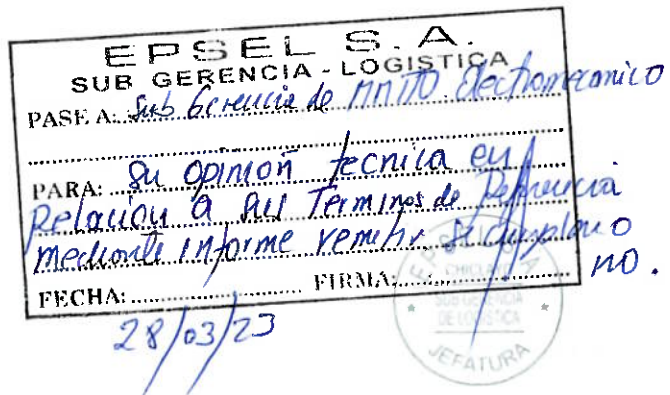 EPSEL S.A.
SUB GERENCIA - LOGISTICA
PASE A: Sub Gerencia de MMTTO Electromecanico
PARA: Su opinion tecnica en
Relación a sus Terminos de Referencia
mediante informe remitir si cumplen o no.
FECHA: FIRMA:
28/03/23
EPSEL S.A.
CHICLAYO
SUB GERENCIA
DE LOGISTICA
JEFATURA